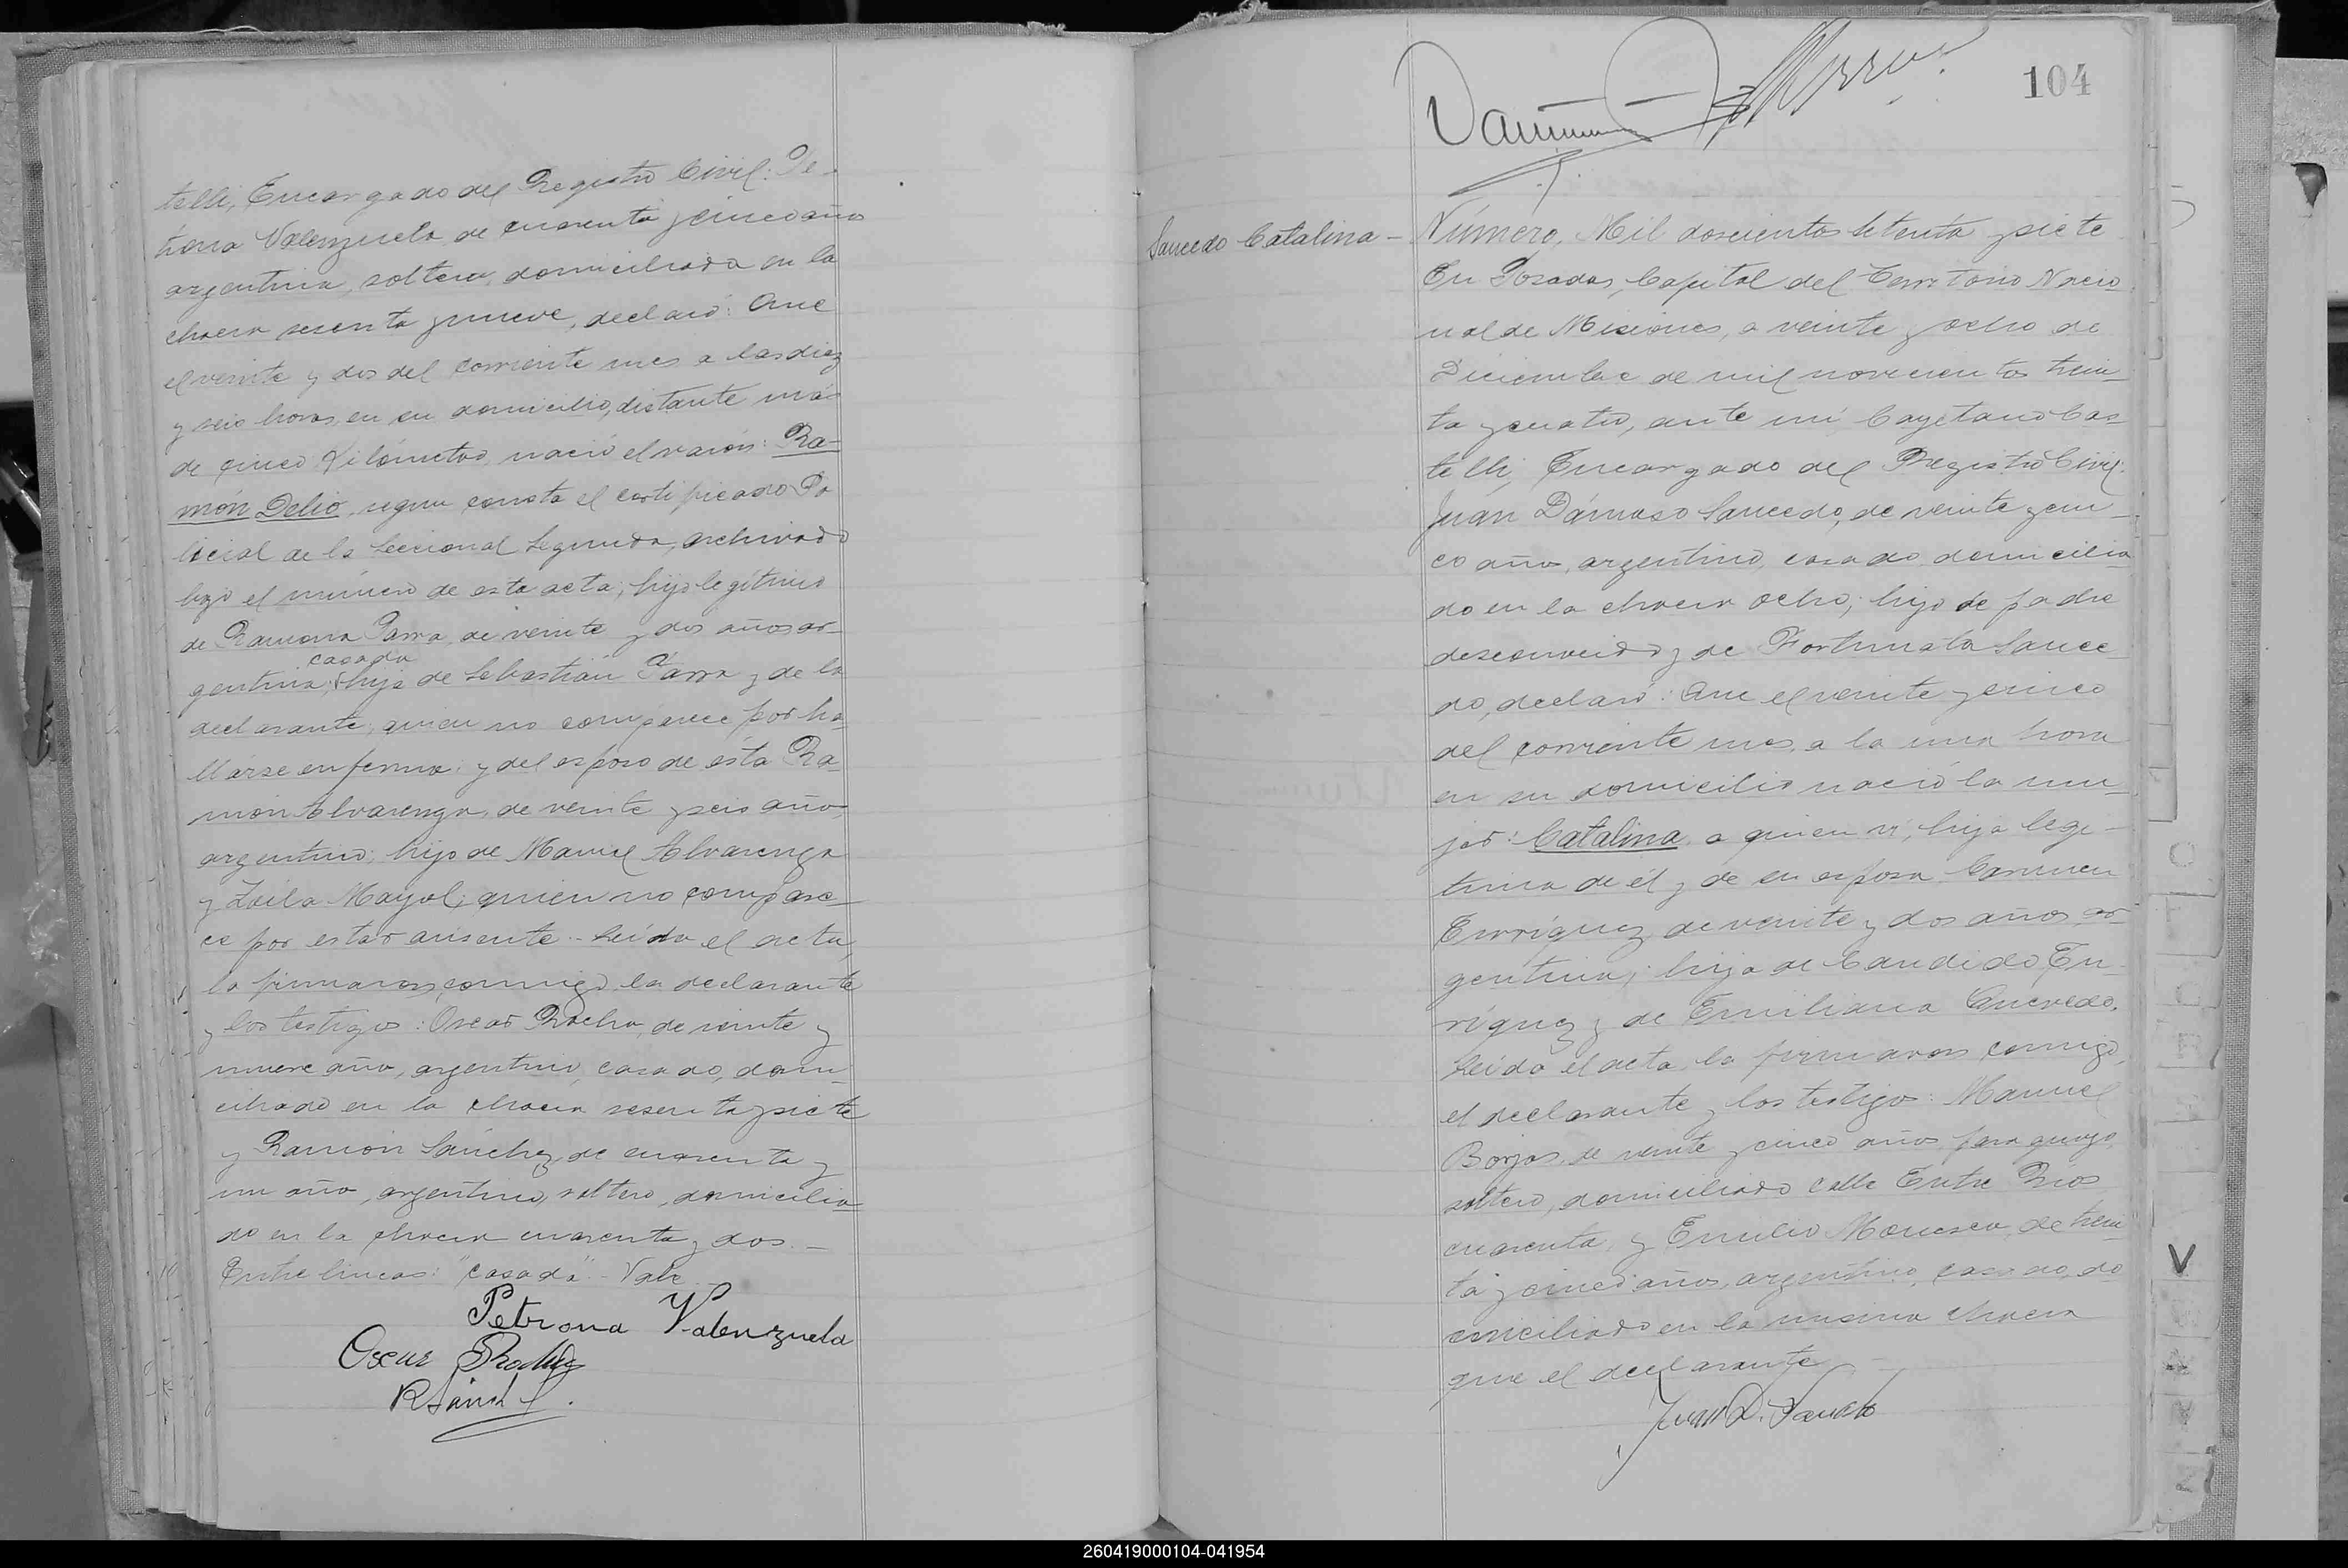 telli, Encargado del Registro Civil: Pe-
trona Valenzuela, de cuarenta y cinco años
argentina, soltera, domiciliada en la
chacra sesenta y nueve, declaró: Que
el veinte y dos del corriente mes a las diez
y seis horas, en su domicilio, distante más
de cinco kilómetros, nació el varón: Ra-
món Delio, según consta el certificado Po
licial de la Seccional Segunda, archivado
bajo el número de esta acta; hijo legítimo
de Ramona Parra, de veinte y dos años ar-
casada
gentina, hija de Sebastián Parra y de la
declarante, quien no comparece por ha-
llarse enferma; y del esposo de ésta Ra-
món Alvarenga, de veinte y seis años,
argentino; hijo de Manuel Alvarenga
y Zoila Mayol; quien no compare-
ce por estar ausente.- Leída el acta,
la firmaron conmigo la declarante
y los testigos: Oscar Rocha, de veinte y
nueve años, argentino, casado, domi-
ciliado en la chacra sesenta y siete
y Ramón Sánchez, de cuarenta y
un año, argentino, soltero, domicilia
do en la chacra cuarenta y dos.-
Entre líneas: "casada".- Vale
Petrona Valenzuela
Oscar Rocha
R Sanch
104
Saucedo Catalina -
Número, Mil doscientos setenta y siete
En Posadas, Capital del Territorio Nacio
nal de Misiones, a veinte y ocho de
Diciembre de mil novecientos trein-
ta y cuatro, ante mí, Cayetano Cas-
telli, Encargado del Registro Civil:
Juan Dámaso Saucedo, de veinte y cin-
co años, argentino, casado, domicilia
do en la chacra ocho; hijo de padre
desconocido y de Fortunata Sauce
do, declaró: Que el veinte y cinco
del corriente mes, a la una hora
en su domicilio nació la mu-
jer: Catalina, a quien ví, hija legí-
tima de él y de su esposa Carmen
Enríquez, de veinte y dos años, ar-
gentina; hija de Candido En-
ríquez y de Emiliana Quevedo.
Leída el acta, la firmaron conmigo,
el declarante y los testigos: Manuel
Borjas, de veinte y cinco años, paraguayo,
soltero, domiciliado calle Entre Ríos
cuarenta, y Emilio de trein
ta y cinco años, argentino, casado, do
miciliado en la misma chacra
que el declarante.-
Juan D. Saucedo
V
260419000104-041954